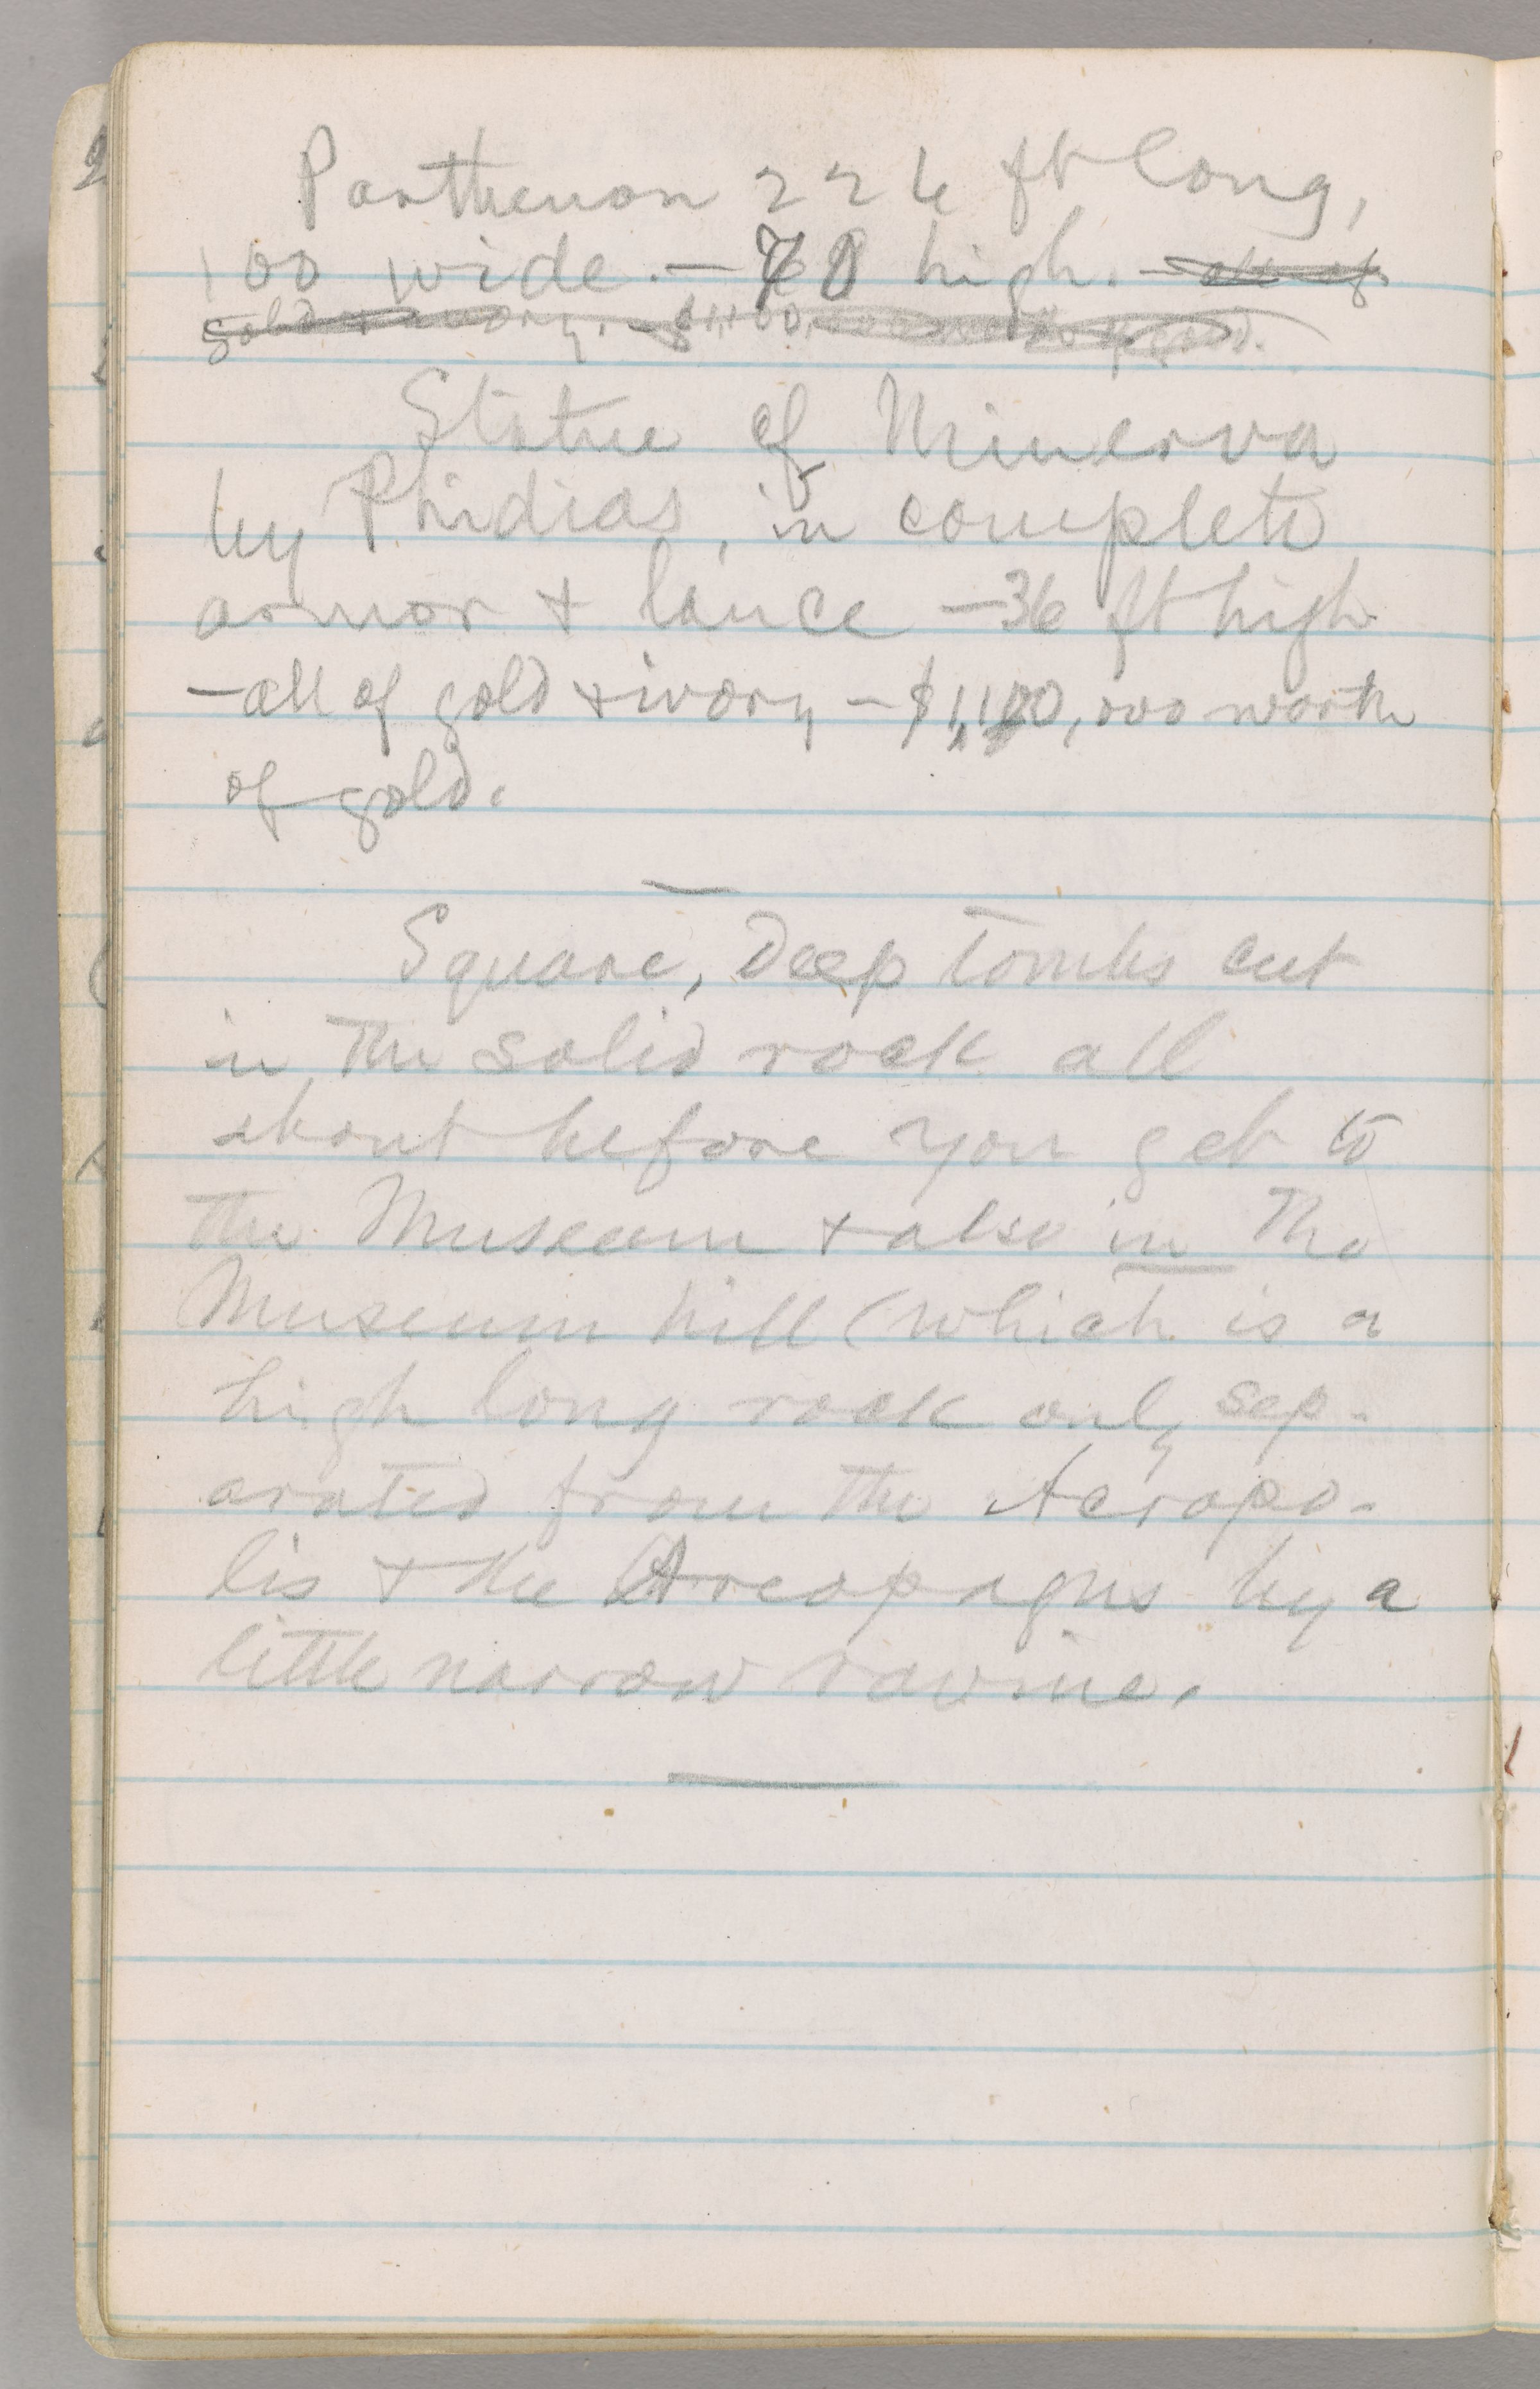 Parthenon 226 ft long,
100 wide. — 70 high. — all of
gold & ivory. — $1,100,000 worth of gold.
Statue of Minerva
by Phidias, in complete
armor & lance — 36 ft high
— all of gold & ivory — $1,100,000 worth
of gold.
Square, deep tombs cut
in the solid rock all
about before you get to
the Museum & also in the
Museum hill (which is a
high long rock only sep-
arated from the Acropo-
lis & the Areopagus by a
little narrow ravine.